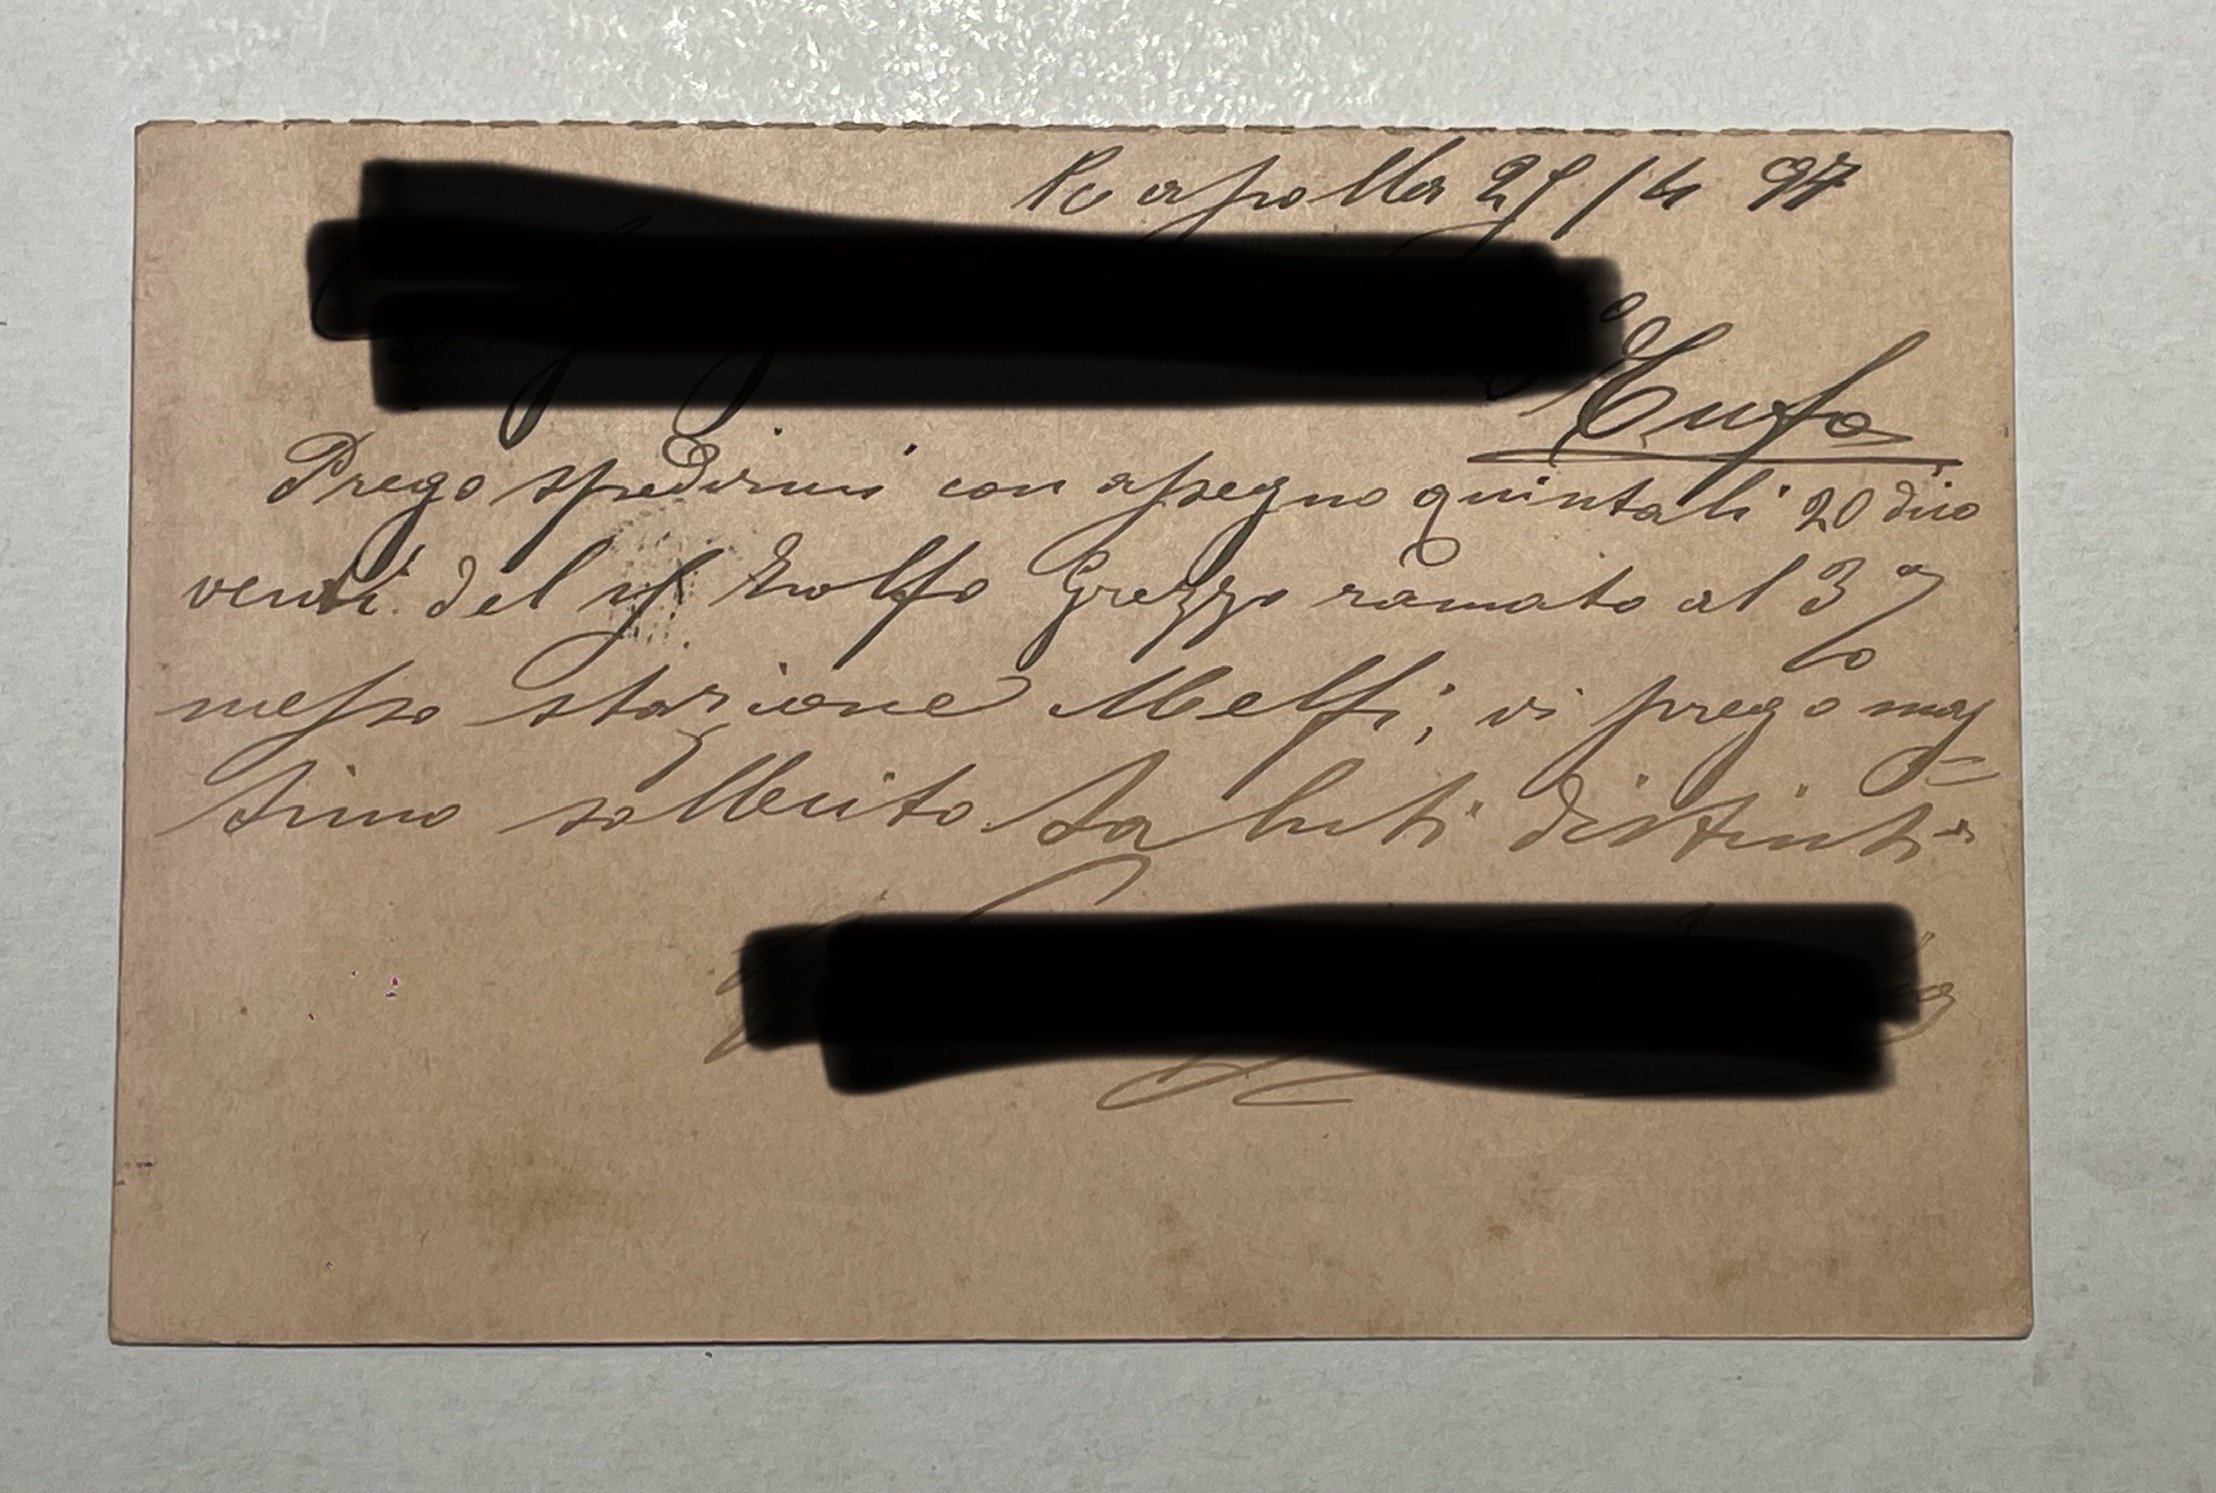 Rapolla 25/4 97
Tufo
Prego spedirmi con assegno quintali 20 dico
venti del Zolfo Grezzo ramato al 3 %
messo stazione Melfi, vi prego mas=
simo sollecito. Saluti distinti